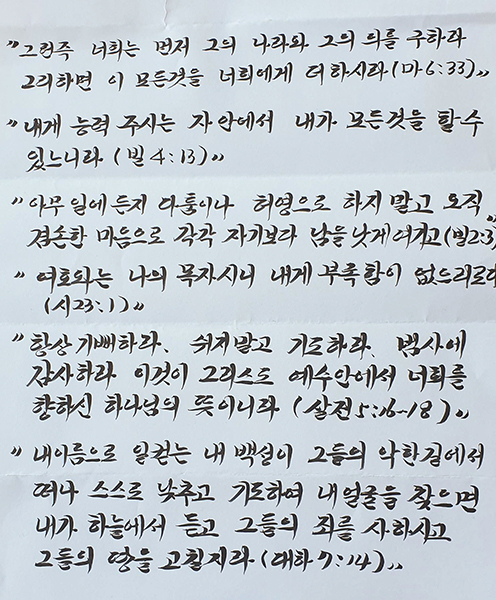 "그런즉 너희는 먼저 그의 나라와 그의 의를 구하라
그리하면 이 모든것을 너희에게 더하시리라(마6:33)"
"내게 능력 주시는 자 안에서 내가 모든것을 할수
있느니라 (빌4:13)"
"아무 일에든지 다툼이나 허영으로 하지 말고 오직
겸손한 마음으로 각각 자기보다 남을 낫게여기고(빌2:3)"
"여호와는 나의 목자시니 내게 부족함이 없으리로다
(시23:1)"
"항상 기뻐하라. 쉬지말고 기도하라. 범사에
감사하라 이것이 그리스도 예수안에서 너희를
향하신 하나님의 뜻이니라 (살전5:16-18)"
"내이름으로 일컫는 내 백성이 그들의 악한길에서
떠나 스스로 낮추고 기도하여 내얼굴을 찾으면
내가 하늘에서 듣고 그들의 죄를 사하시고
그들의 땅을 고칠지라(대하7:14)"